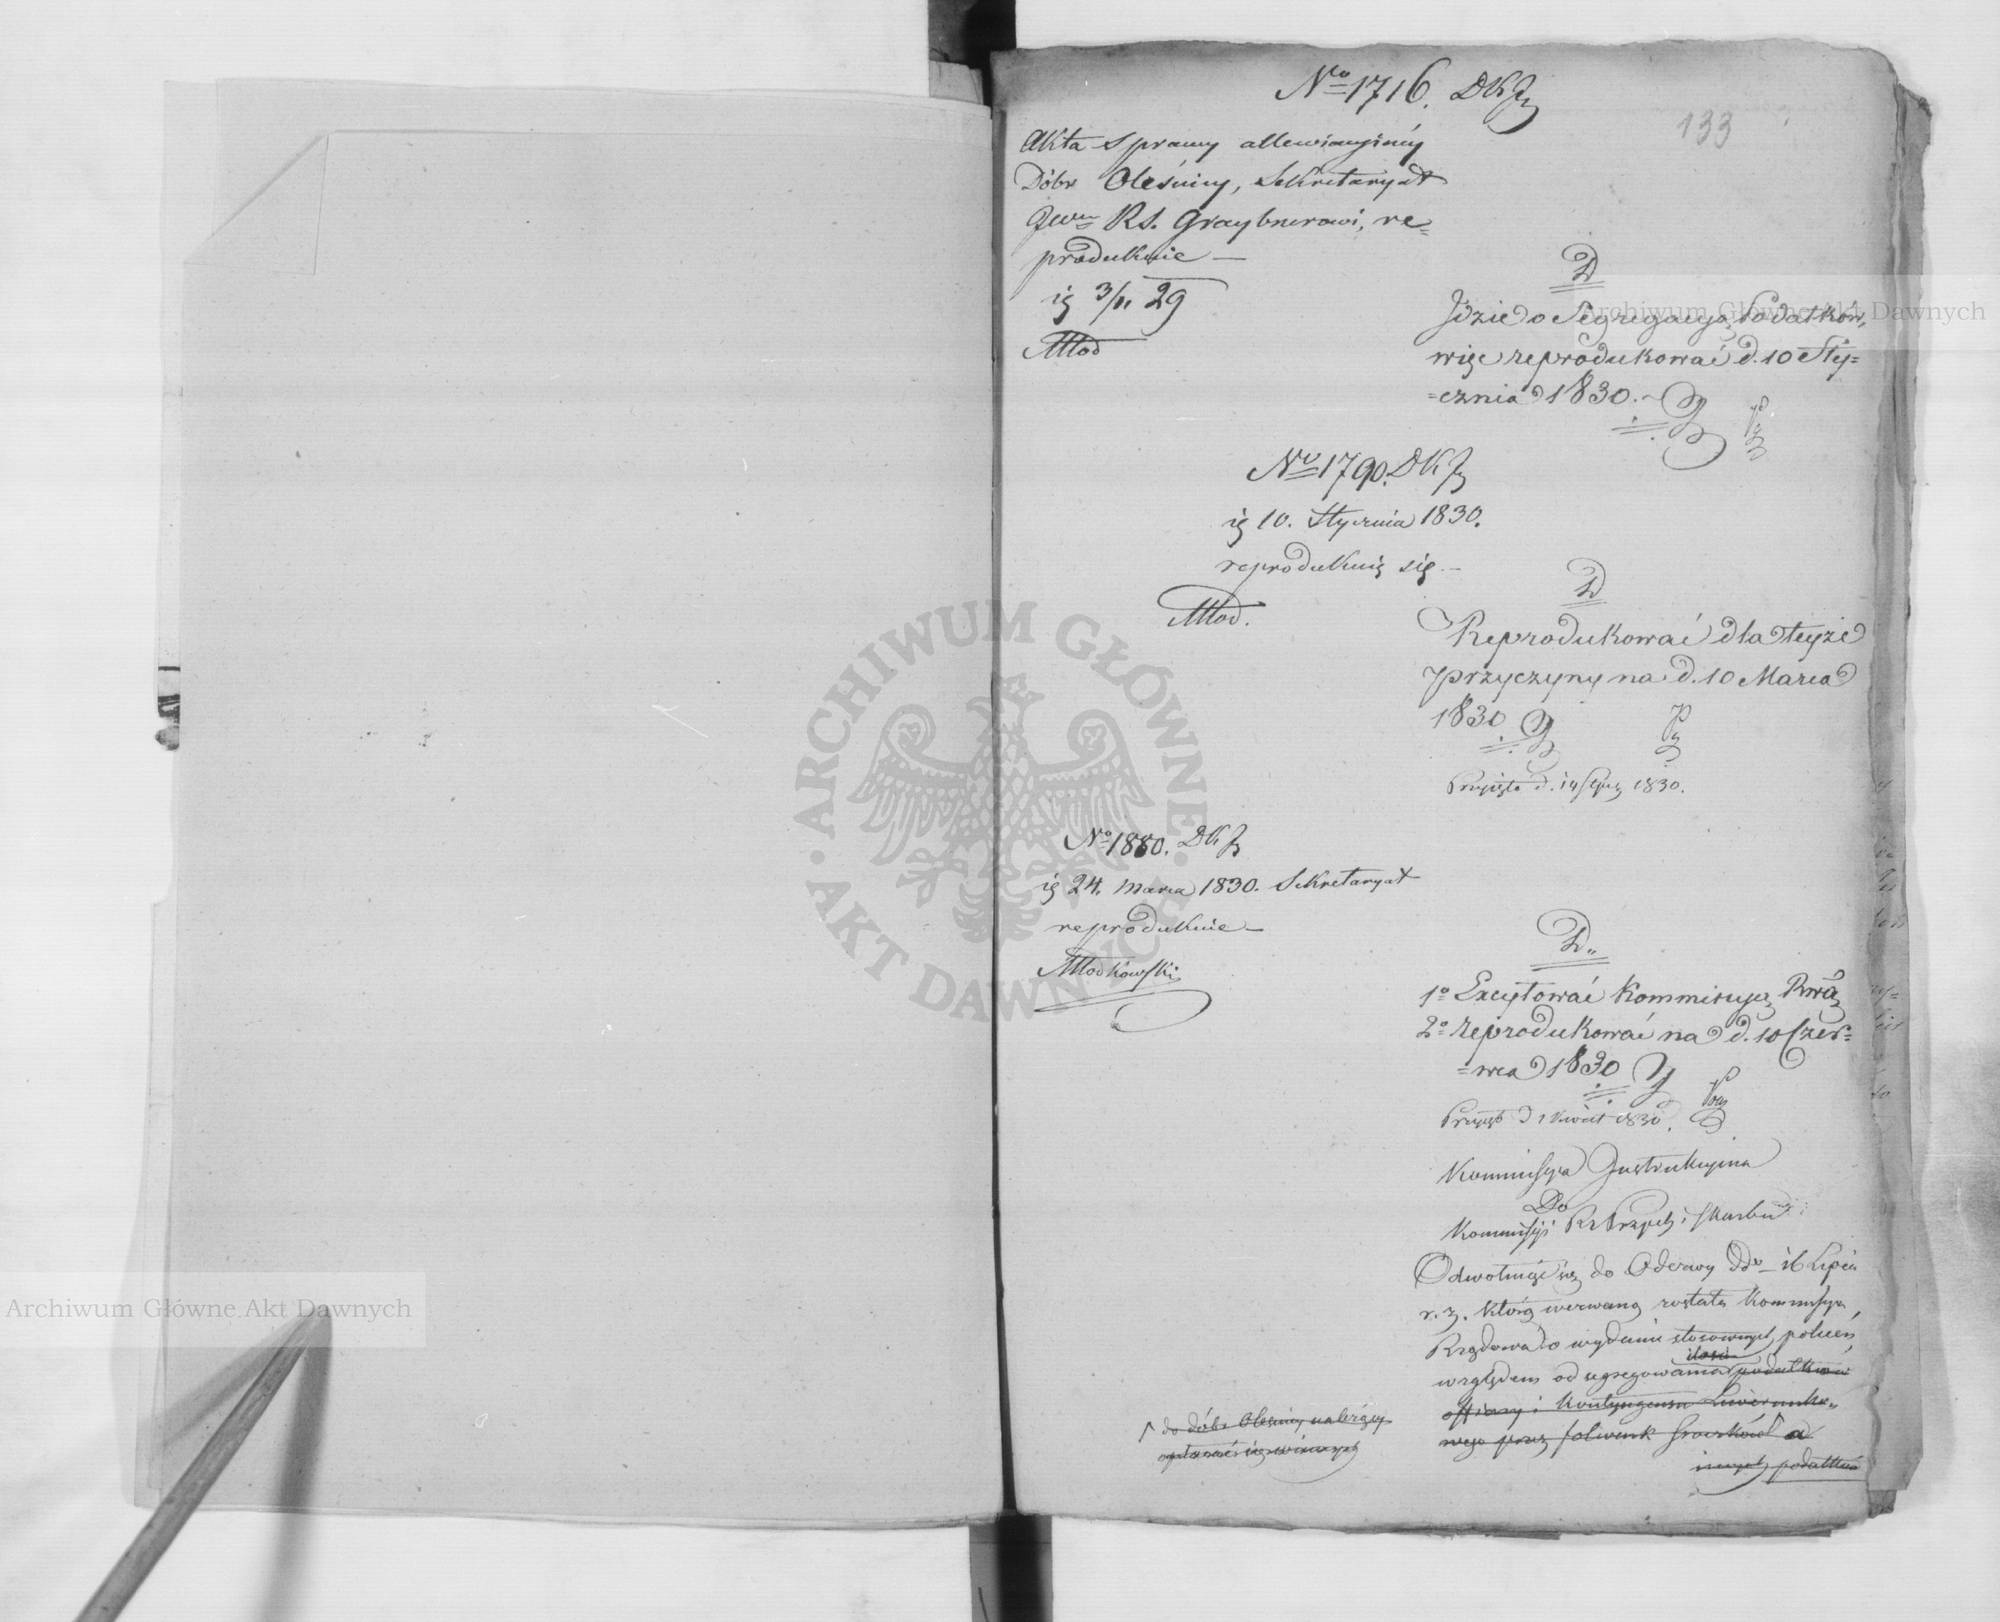 No 1716. DKJ
133
Akta Sprawy allewiacyjnéy
Dóbr Oleśnicy, Sekretaryat
Rs. Graybnerowi, re=
produkuie —
ig 3/11 29
Młod
D
Idzie o Segregacyą Podatków,
więc reprodukować d. 10 Sty=
=cznia 1830.
No 1790. DKJ
ig 10. Stycznia 1830.
reprodukuię się. —
Młod.
D
Reprodukować dla teyże
przyczyny na d. 10 Marca
1830
d. 14 1830.
No 1880. DKJ
ig 24. Marca 1830. Sekretaryat
reprodukuie —
Młodkowski
D
1o Excytować Kommissyą Rwą
2o reprodukować na d. 10 Czer=
=wca 1830
d 1 Kwiet 1830.
Kommissya Instrukcyina
Do
Kommissyi Rz Przych i Skarbu
Odwołuiąc się do Odezwy 16 Lipca
r. z. którą wezwaną została Kommissya
Rządowa o wydanie stosownych poleceń,
względem od segregowania podatków
ilości
ofiary i Kontyngensu Liwerunko=
wego przez folwark a
innych podatków
do dóbr Oleśnicy należący
opłacać się winnych
ARCHIWUM GŁÓWNE AKT DAWNYCH
Archiwum Główne Akt Dawnych
Archiwum Główne Akt Dawnych